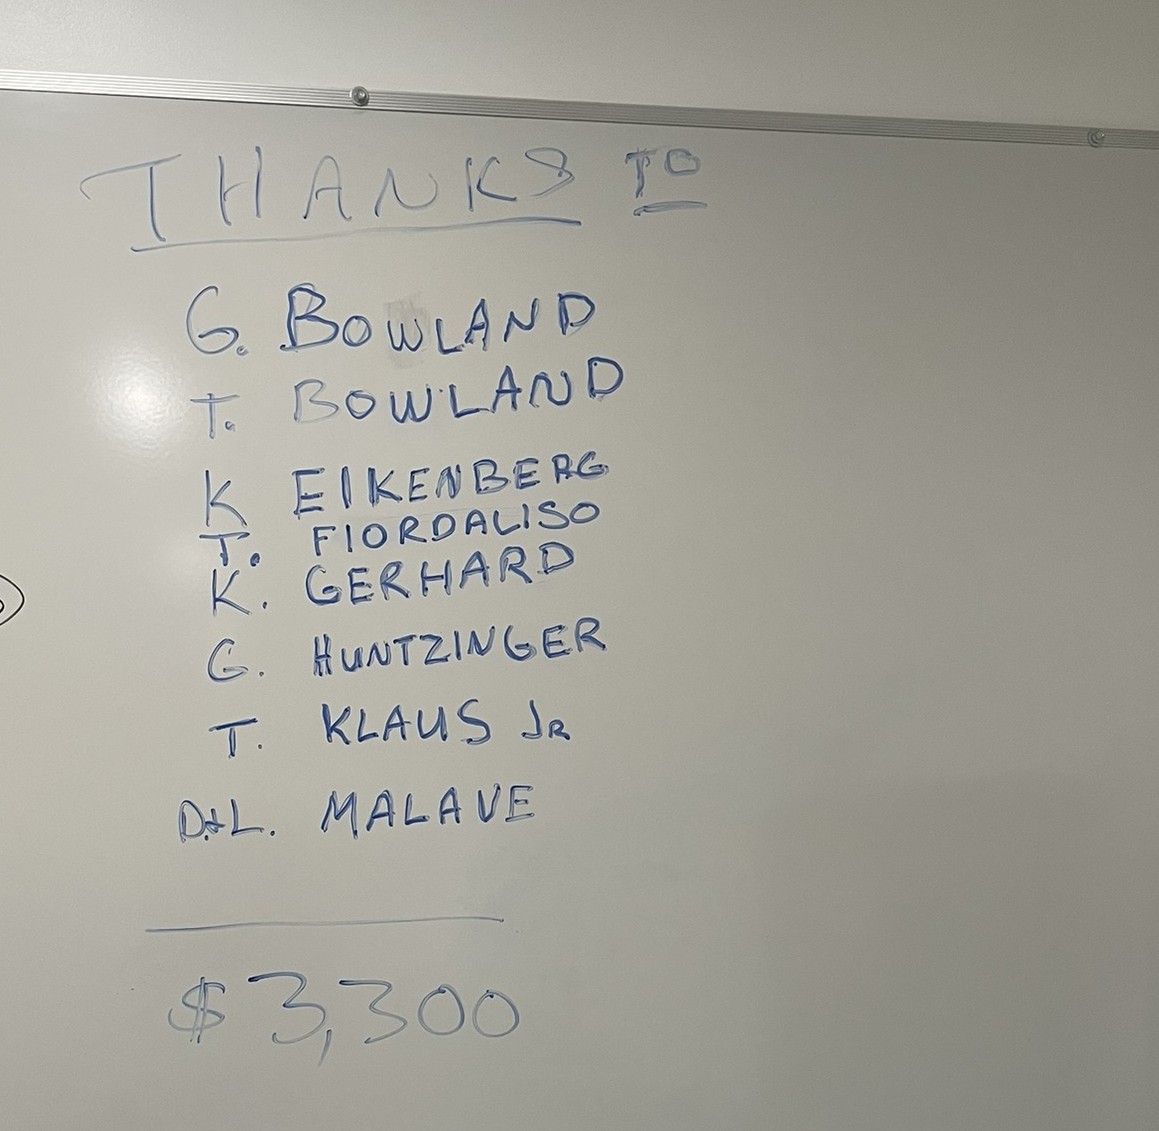 THANKS TO
G. BOWLAND
T. BOWLAND
K EIKENBERG
T. FIORDALISO
K. GERHARD
G. HUNTZINGER
T. KLAUS JR
D+L. MALAVE
$3,300